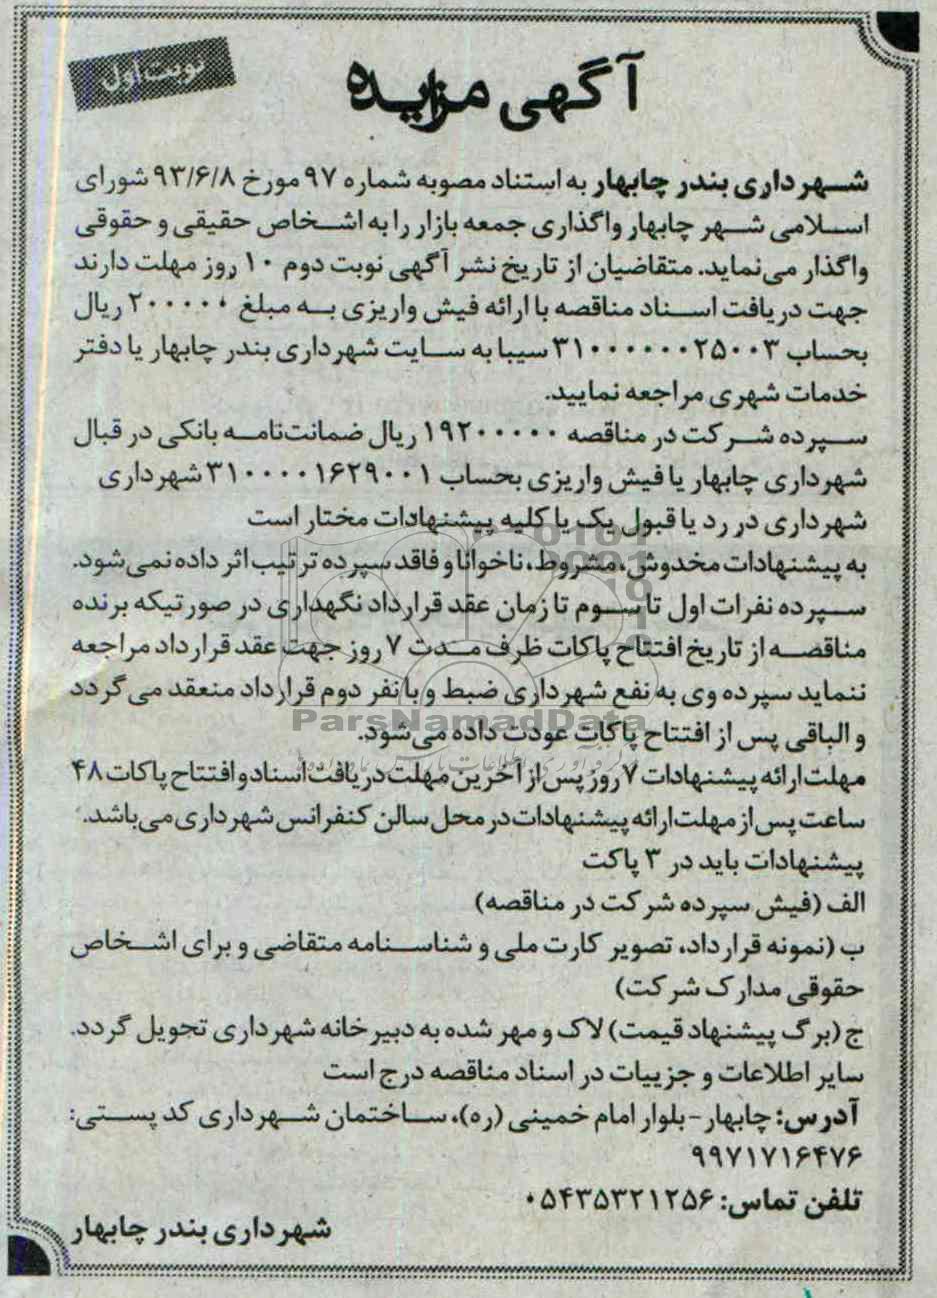 نوبت اول
آگهی مزایده
شهرداری بندر چابهار به استناد مصوبه شماره ۹۷ مورخ ۹۳/۶/۸ شورای
اسلامی شهر چابهار واگذاری جمعه بازار را به اشخاص حقیقی و حقوقی
واگذار می‌نماید. متقاضیان از تاریخ نشر آگهی نوبت دوم ۱۰ روز مهلت دارند
جهت دریافت اسناد مناقصه با ارائه فیش واریزی به مبلغ ۲۰۰۰۰۰ ریال
بحساب ۳۱۰۰۰۰۰۰۲۵۰۰۳ سیبا به سایت شهرداری بندر چابهار یا دفتر
خدمات شهری مراجعه نمایید.
سپرده شرکت در مناقصه ۱۹۲۰۰۰۰۰ ریال ضمانت‌نامه بانکی در قبال
شهرداری چابهار یا فیش واریزی بحساب ۳۱۰۰۰۰۱۶۲۹۰۰۱ شهرداری
شهرداری در رد یا قبول یک یا کلیه پیشنهادات مختار است
به پیشنهادات مخدوش، مشروط، ناخوانا و فاقد سپرده ترتیب اثر داده نمی‌شود.
سپرده نفرات اول تا سوم تا زمان عقد قرارداد نگهداری در صورتیکه برنده
مناقصه از تاریخ افتتاح پاکات ظرف مدت ۷ روز جهت عقد قرارداد مراجعه
ننماید سپرده وی به نفع شهرداری ضبط و با نفر دوم قرارداد منعقد می‌گردد
ParsNamadData
و الباقی پس از افتتاح پاکات عودت داده می‌شود.
مهلت ارائه پیشنهادات ۷ روز پس از آخرین مهلت دریافت اسناد و افتتاح پاکات ۴۸
ساعت پس از مهلت ارائه پیشنهادات در محل سالن کنفرانس شهرداری می‌باشد.
پیشنهادات باید در ۳ پاکت
الف (فیش سپرده شرکت در مناقصه)
ب (نمونه قرارداد، تصویر کارت ملی و شناسنامه متقاضی و برای اشخاص
حقوقی مدارک شرکت)
ج (برگ پیشنهاد قیمت) لاک و مهر شده به دبیرخانه شهرداری تحویل گردد.
سایر اطلاعات و جزییات در اسناد مناقصه درج است
آدرس: چابهار - بلوار امام خمینی (ره)، ساختمان شهرداری کد پستی:
۹۹۷۱۷۱۶۴۷۶
تلفن تماس: ۰۵۴۳۵۳۲۱۲۵۶
شهرداری بندر چابهار